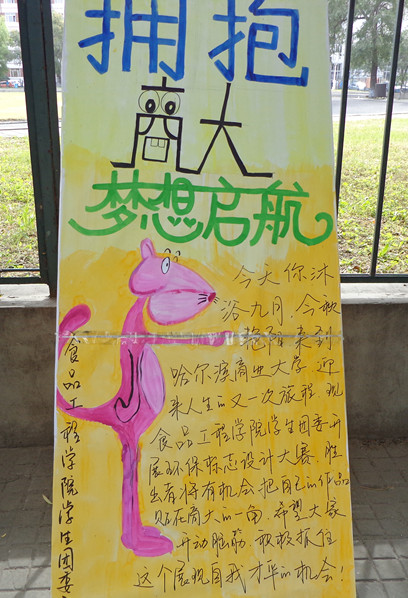 拥抱
商大
梦想启航
今天你沐
浴九月.今秋
艳阳来到
哈尔滨商业大学.迎
来人生的又一次旅程.现
食品工程学院学生团委开
展环保标志设计大赛.胜
出者将有机会把自己的作品
贴在商大的一角.希望大家
开动脑筋.积极抓住
这个展现自我才华的机会!
食品工程学院学生团委